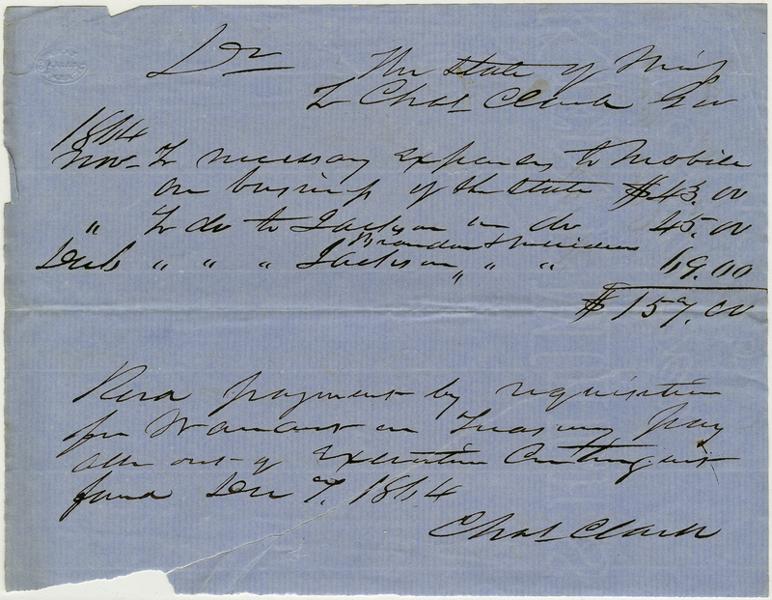 Dr The State of Miss
To Chas Clark Gov
1864
Nov- To necessary expenses to Mobile
on business of the State $43.00
" To do to Jackson on do 45.00
Brandon & Meridian
Decb " " " Jackson " " " 69.00
$157.00
Recd payment by requisition
for Warrant on Treasury pay
able out of Executive Contingent
fund Dec 7, 1864
Chas Clark